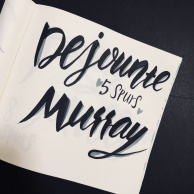 Dejounte
5 Spurs
Murray